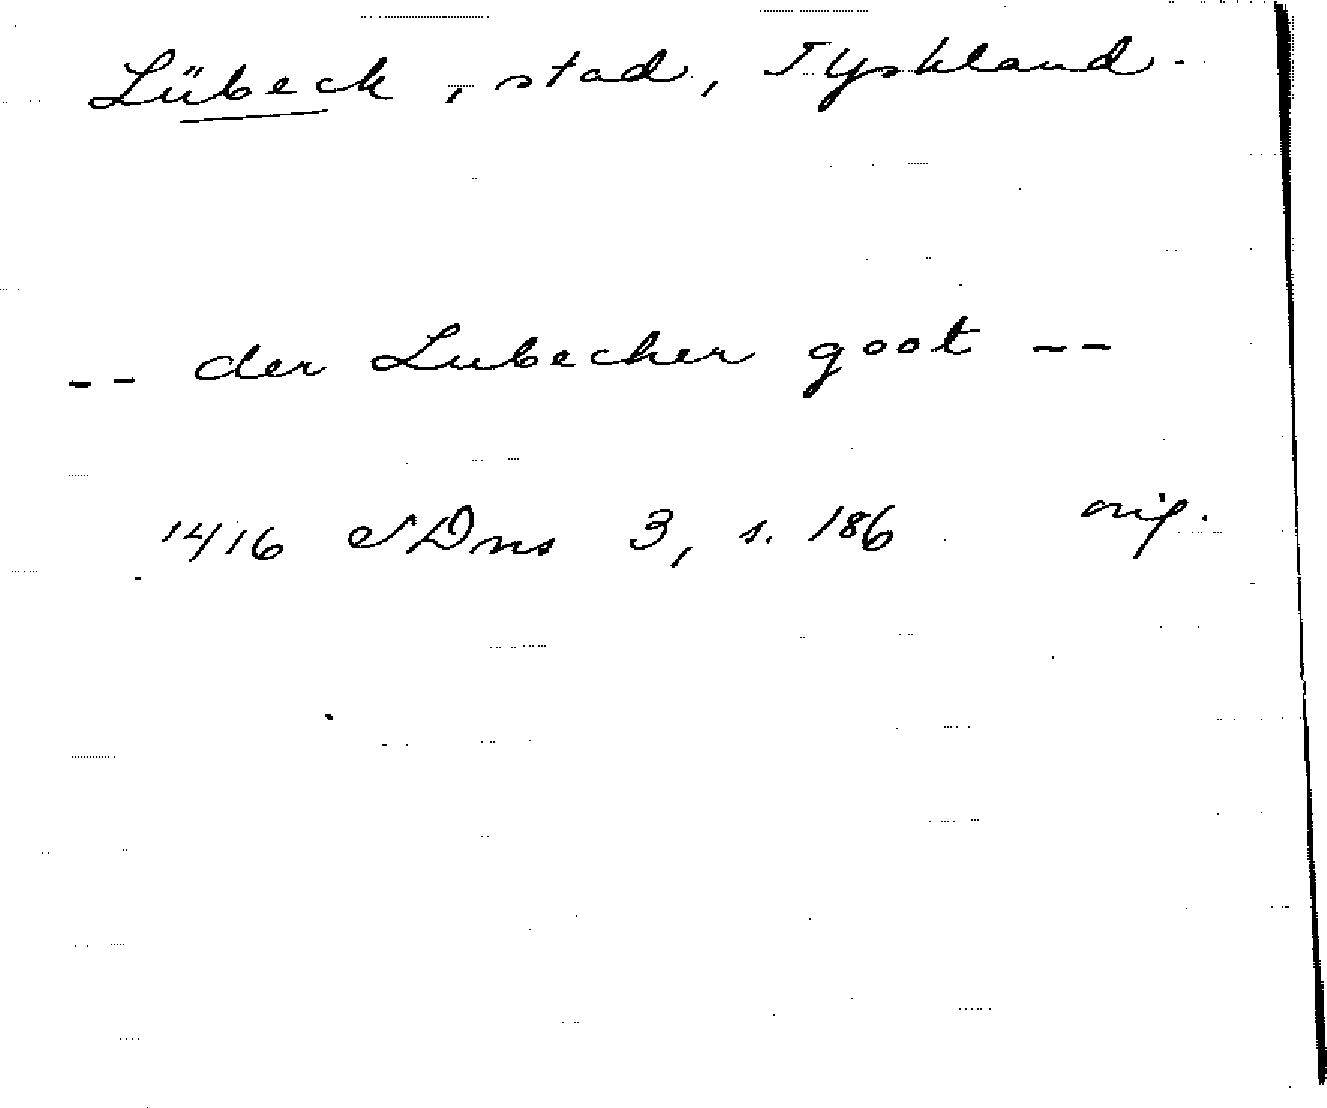 Lübeck, stad, Tyskland.
-- der Lubecher goot --
1416 SDns 3, s. 186 orig.